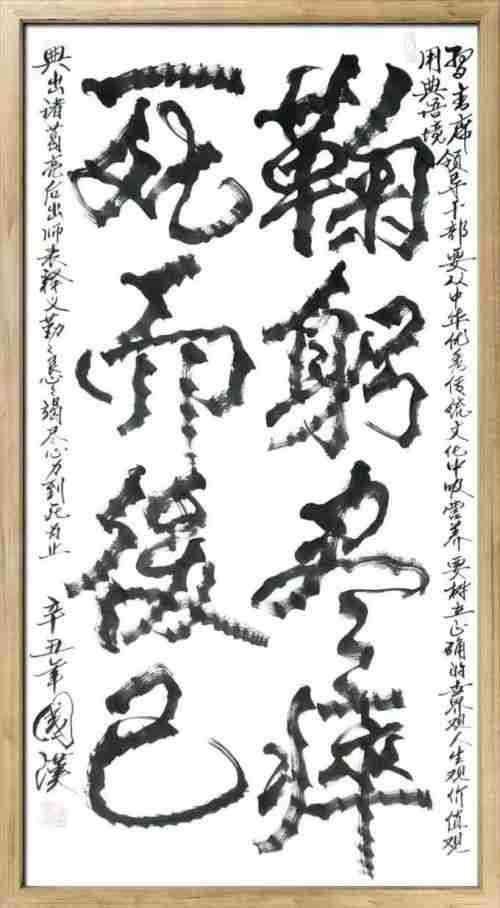 习主席领导干部要从中华优秀传统文化中吸营养要树立正确的世界观人生观价值观
用典语境
鞠躬尽瘁
死而後已
典出诸葛亮后出师表释义勤勤恳恳竭尽心力到死为止
辛丑年國漢